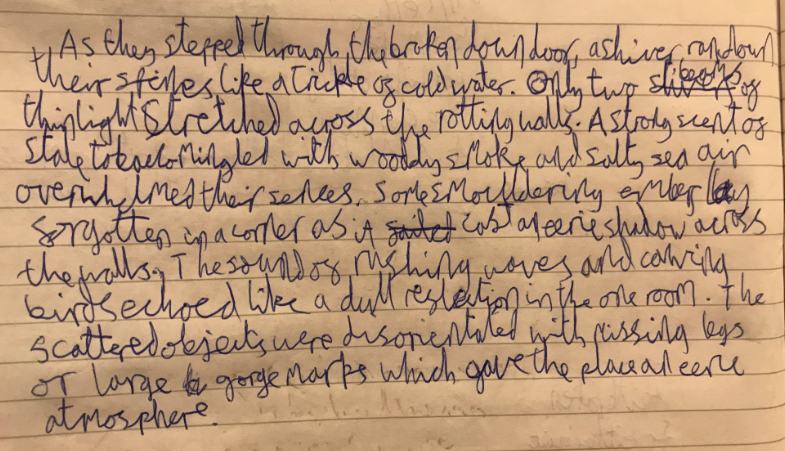 As they stepped through the broken down door, a shiver ran down
their spines like a trickle of cold water. Only two beams of
thin light stretched across the rotting walls. A strong scent of
stale tobaco mingled with woody smoke and salty sea air
overwhelmed their sences. Some smouldering ember lay
forgotten in a corner as it cast an eerie shadow across
the walls. The sound of rushing waves and cawing
birds echoed like a dull reflection in the one room. The
scattered objects were disorientated with missing legs
or large gorge marks which gave the place an eerie
atmosphere.